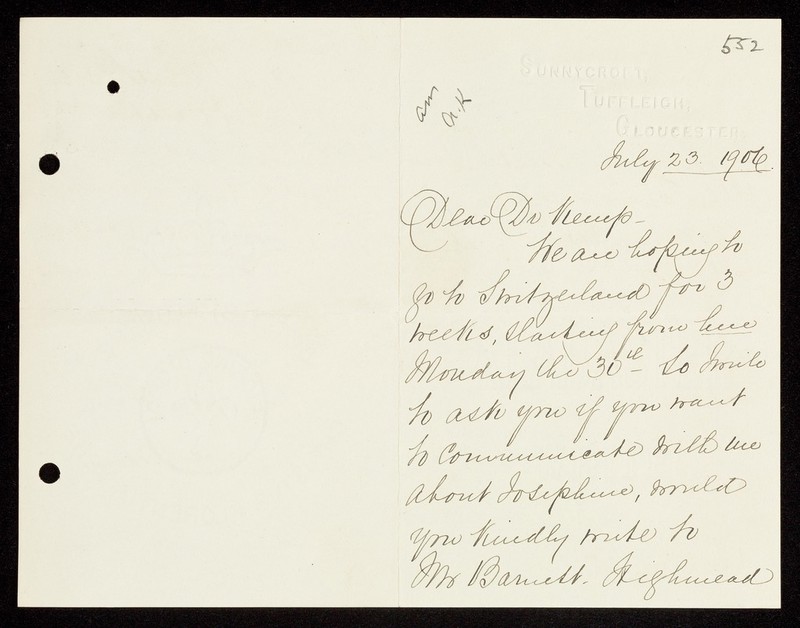 552
SUNNYCROFT,
TUFFLEIGH,
GLOUCESTER.
July 23. 1906.
Dear Dr Kemp—
We are hoping to
go to Switzerland for 3
weeks, starting from here
Monday the 30th — So I write
to ask you if you want
to communicate with me
about Josephine, would
you kindly write to
Mr Barnett. Highmead